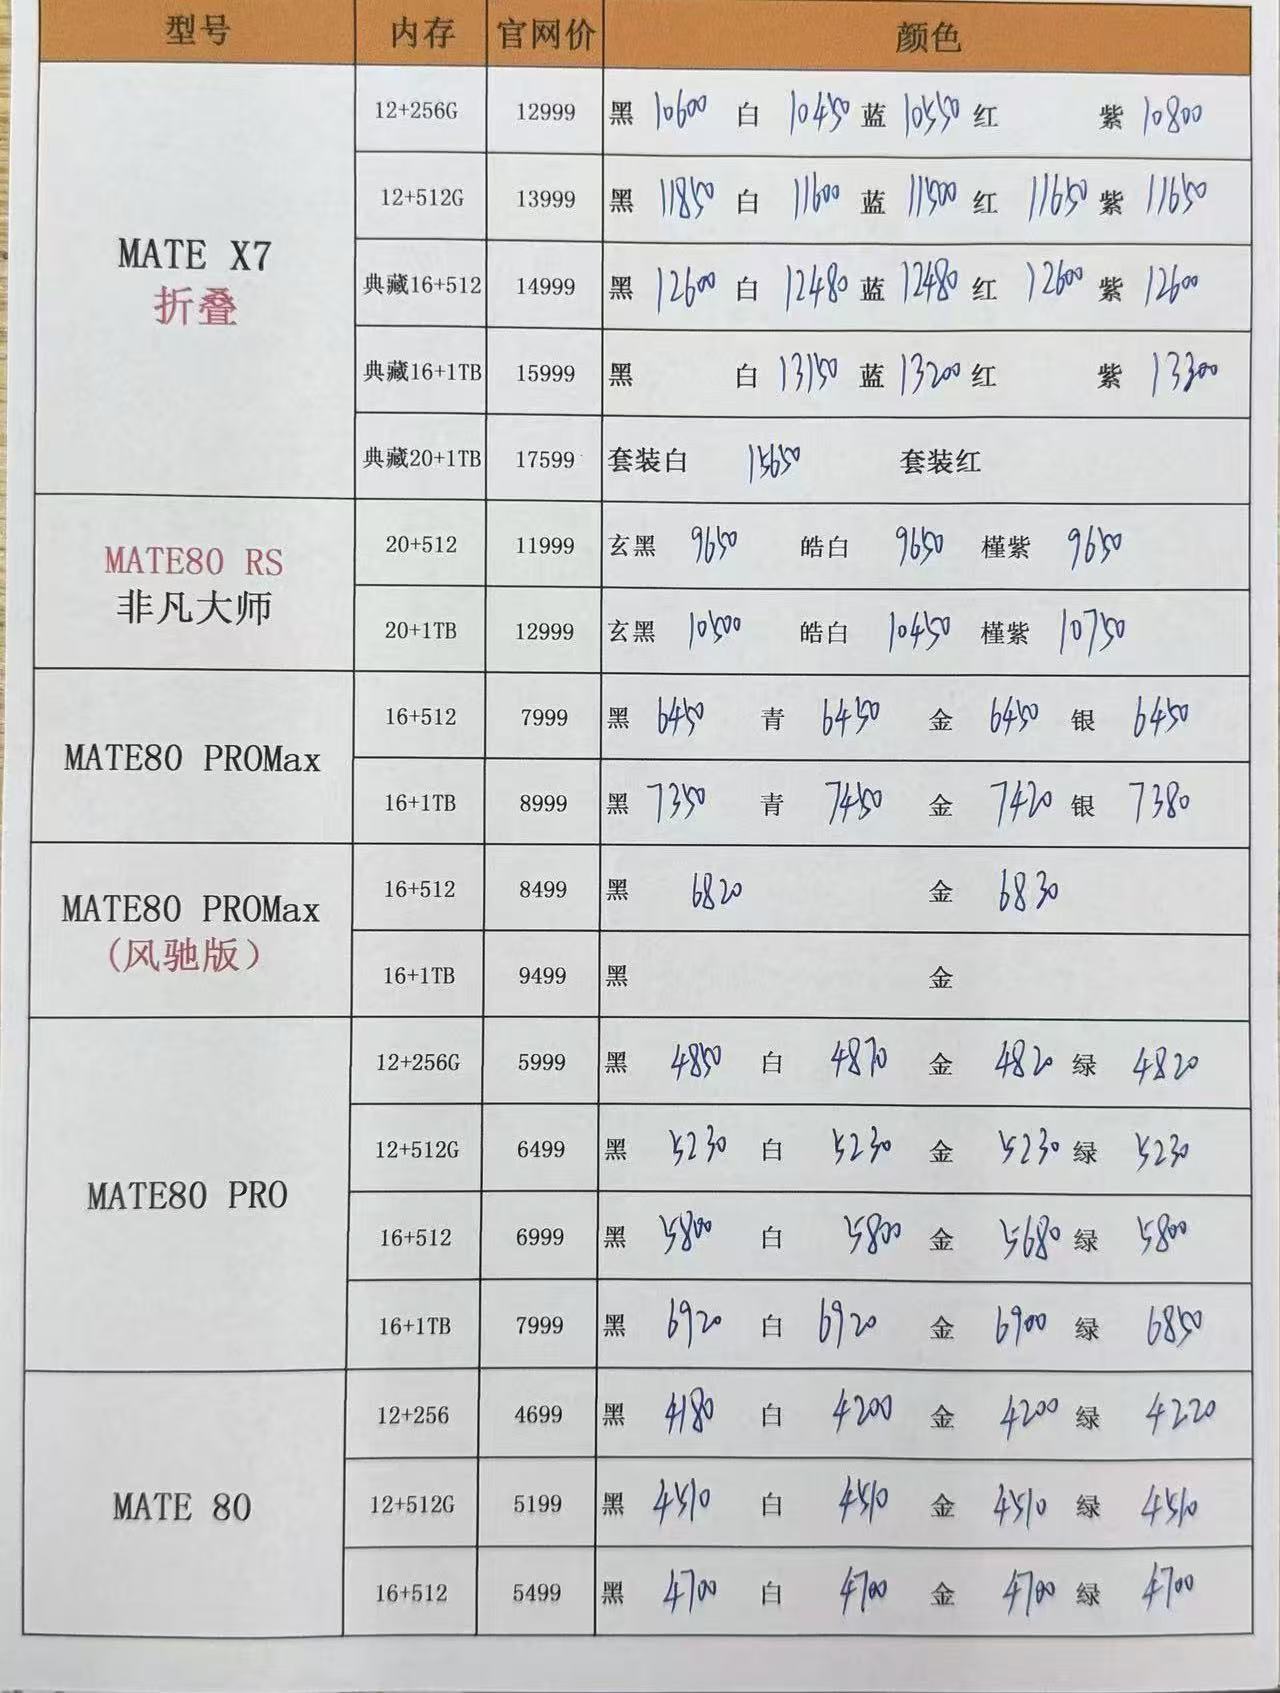 型号 内存 官网价 颜色
MATE X7
折叠
12+256G 12999 黑 10600 白 10450 蓝 10550 红 紫 10800
12+512G 13999 黑 11850 白 11600 蓝 11500 红 11650 紫 11650
典藏16+512 14999 黑 12600 白 12480 蓝 12480 红 12600 紫 12600
典藏16+1TB 15999 黑 白 13150 蓝 13200 红 紫 13300
典藏20+1TB 17599 套装白 15650 套装红
MATE80 RS
非凡大师
20+512 11999 玄黑 9650 皓白 9650 槿紫 9650
20+1TB 12999 玄黑 10500 皓白 10450 槿紫 10750
MATE80 PROMax
16+512 7999 黑 6450 青 6450 金 6450 银 6450
16+1TB 8999 黑 7350 青 7450 金 7420 银 7380
MATE80 PROMax
(风驰版）
16+512 8499 黑 6820 金 6830
16+1TB 9499 黑 金
MATE80 PRO
12+256G 5999 黑 4850 白 4870 金 4820 绿 4820
12+512G 6499 黑 5230 白 5230 金 5230 绿 5230
16+512 6999 黑 5800 白 5800 金 5680 绿 5800
16+1TB 7999 黑 6920 白 6920 金 6900 绿 6850
MATE 80
12+256 4699 黑 4180 白 4200 金 4200 绿 4220
12+512G 5199 黑 4510 白 4510 金 4510 绿 4510
16+512 5499 黑 4700 白 4700 金 4700 绿 4700